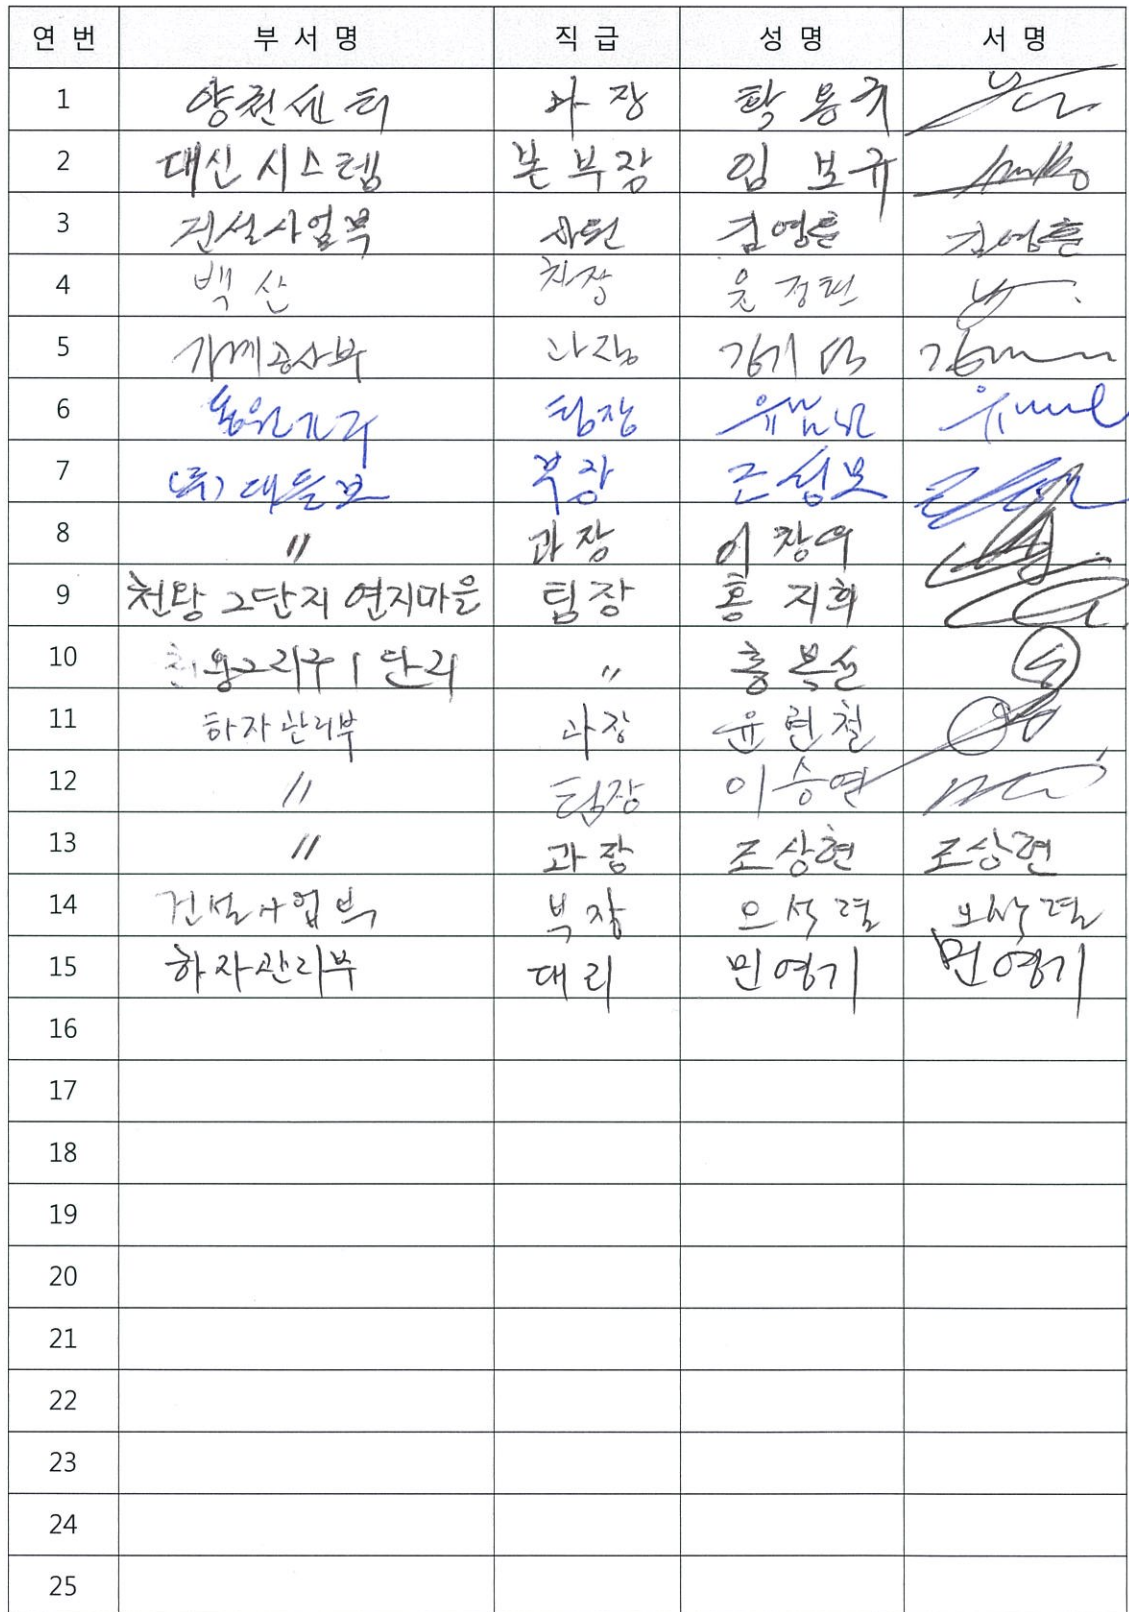 연 번 부 서 명 직 급 성 명 서 명
1 양천센터 차장 탁용규
2 대신시스템 본부장 임보규
3 건설사업부 사원 김영훈 김영훈
4 백산 차장
5 기계공사부 과장
6 팀장
7 (주)대들보 부장 조성모
8 〃 과장 이창우
9 천왕 2단지 연지마을 팀장 홍지희
10 〃 홍복선
11 하자관리부 과장 윤련철
12 〃 팀장 이승연
13 〃 과장 조상현 조상현
14 건설사업부 부장
15 하자관리부 대리 민영기 민영기
16
17
18
19
20
21
22
23
24
25